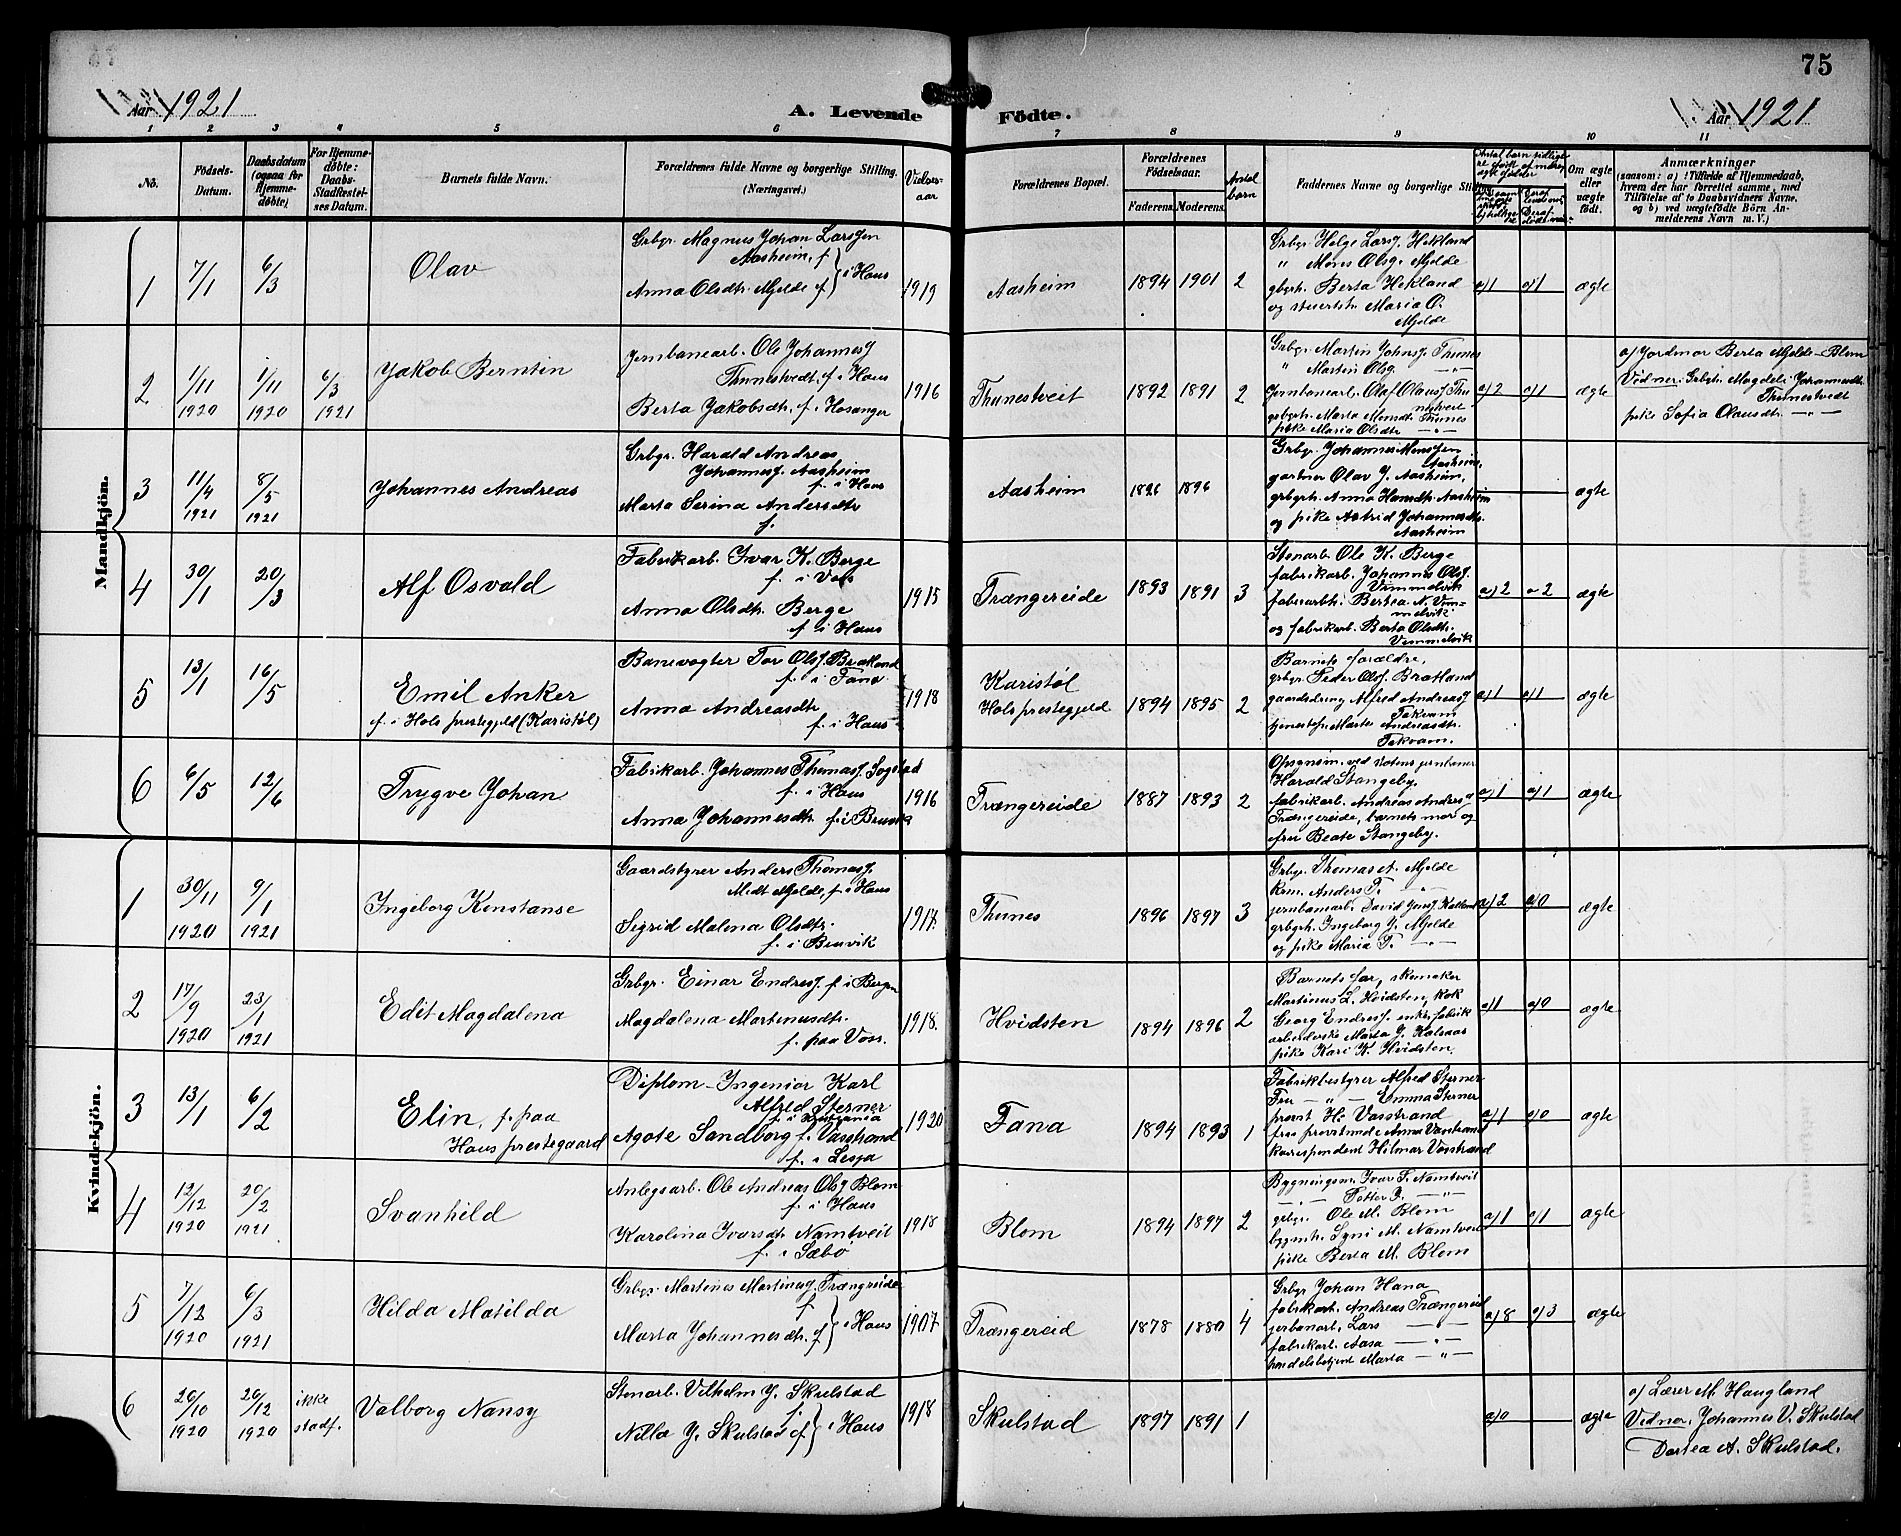 Aar 1921
A. Levende
Födte.
Aar 1921
75
1 2 3 4 5 6 7 8 9 10 11
No.
Födsels-
Datum.
Daabsdatum
(ogsaa for
Hjemme-
døbte)
For Hjemme-
døbte:
Daabs-
Stadfestel-
ses Datum.
Barnets fulde Navn.
Forældrenes fulde Navne og borgerlige Stilling.
(Næringsvei.)
Vielses-
aar
Forældrenes Bopæl.
Forældrenes
Födselsaar.
Faderens.
Moderens.
Antal
barn
Faddernes Navne og borgerlige Stilling
Om ægte
eller
uægte
født.
Anmærkninger
(saasom: a) i Tilfælde af Hjemmedaab,
hvem der har forrettet samme, med
Tilföielse af to Daabsvidners Navne,
og b) ved uægtefödte Börn An-
melderens Navn m. V.)
Mandkjön.
1
7/1
6/3
Olav
Grbgr. Magnus Johan Larssen
Aasheim, f.
Anna Olsdtr. Mjelde f. } i Haus
1919
Aasheim
1894
1901
2
Grbgr. Helge Larsf. Hekland
" Mons Olsg. Mjelde
gbgrh. Berta Hekland
og stuertstr. Maria O.
Mjelde
a)1
a)1
ægte
2
1/11
1920
1/11
1920
6/3
1921
Jakob Berntin
Jernbanearb. Ole Johannesf
Thunestvedt, f. i Haus
Berta Jakobsdtr. f. i Hosanger
1916
Thunestveit
1892
1891
2
Grbgr. Martin Johnsf. Thunes
" Martin Olsg. —"—
Jernbanearb. Olaf Olausf Thu
nestveit
gbgrh. Marta Monsdtr. Thunes
pike Maria Olsdtr —"—
a)2
a)1
ægte
a) Jordmor Berta Mjelde-Blom
Vidner: Grbgtr. Magdeli Johannesdtr.
Thunestvedt
pike Sofia Olausdtr. —"—
3
11/4
1921
8/5
1921
Johannes Andreas
Grbgr. Harald Andreas
Johannesf. Aasheim
f. i Haus
Marta Serina Andersdtr
f.
Aasheim
1896
1896
Grbgr. Johannes Monssen
Aasheim,
gartner Olav J. Aasheim,
grbgrh. Anna Hansdtr. Aasheim
og pike Astrid Johannesdtr.
Aasheim
ægte
4
30/1
20/3
Alf Osvald
Fabrikarb. Ivar K. Berge
f. i Voss
Anna Olsdtr. Berge
f. i Haus
1915
Trængereide
1893
1891
3
Stenarb. Ole K. Berge
fabrikarb. Johannes Olsf.
Vimmelvik
fabrikarbh. Bertea N. Vim-
melvik
og fabrikarb. Berta Olsdtr.
Vimmelvik
a)2
a 2
ægte
5
13/1
16/5
Emil Anker
f. i Hols prestegjeld (Karistöl)
Banevogter Tor Olsf. Bratland
f. i Fana
Anna Andreasdtr
f. i Haus
1918
Karistöl
Hols prestegjeld
1894
1895
2
Barnets forældre,
grbgr. Peder Olsf. Bratland
gaardsdreng Alfred Andreasf
Takvam
tjenestep. Marta Andreasdtr.
Takvam.
a)1
a)1
ægte
6
6/5
12/6
Trygve Johan
Fabrikarb. Johannes Thomasf. Sogstad
f. i Haus
Anna Johannesdtr. f. i Bruvik
1916
Trængereide
1887
1893
2
Harald Stangeby,
fabrikarb. Andreas Anders
Trængereide, barnets mor og
fru Beate Stangeby.
a)1
a)1
ægte
Kvindekjön.
1
30/11
1920
9/1
1921
Ingeborg Konstanse
Gaardstyrer Anders Thomasf.
Midt Mjelde, f. i Haus
Sigrid Malena Olsdtr.
f. i Bruvik
1917.
Thunes
1896
1897
3
Grbgr. Thomas A. Mjelde
krm. Anders T. —"—
jernbanearb. David
grbgrh. Ingeborg J. Mjelde
og pike Maria T. —"—
a)2
a)0
ægte
2
17/9
1920
23/1
1921
Edit Magdalena
Grbgr. Einar Endresf. f. i Bergen
Magdalena Martinusdtr.
f. paa Voss.
1918.
Hvidsten
1894
1896
2
Barnets far, skomaker
Martinus L. Hvidsten, kok
Georg Endresf. enke fabrik
arbeiderske Marta J. Kalsaas
pike Kari K. Hvidsten.
a)1
a)0
ægte
3
13/1
6/2
Elin, f. paa
Haus prestegaard
Diplom-Ingeniør Karl
Alfred Sterner
f. i Kristiania
Agote Sandborg f. Vasstrand
f. i Lesja
1920
Fana
1894
1893
1
Fabrikbestyrer Alfred Sterner
Fru —"— Emma Sterner
provst H. Vasstrand
fru provstinde Anna Vasstrand
korrespondent Hilmar Vasstrand
a)1
a)0
ægte
4
12/12
1920
20/2
1921
Svanhild
Anlegsarb. Ole Andreas Olsg Blom
f. i Haus
Karolina Ivarsdtr. Namtveit
f. i Sæbö
1918
Blom
1894
1897
2
Bygningsm. Ivar S. Namtveit
—"— Petter J. —"—
gbgr. Ole M. Blom
bygmh. Syni M. Namtveit
pike Berta M. Blom
a)1
a)1
ægte
5
7/12
1920
6/3
1921
Hilda Matilda
Grbgr. Martines Martinusf. Trængereide
f.
Marta Johannesdtr. f. } i Haus
1907
Trængereid
1878
1880
4
Grbgr Johan Hana
fabrikarb. Andreas Trængereid
jerbanarb. Lars —"—
fabrikarb. Aasa —"—
handelsbetjent Marta —"—
a)8
a)3
ægte
6
26/10
1920
26/12
1920
ikke
stadf.
Valborg Nansy
Stenarb. Vilhelm J. Skulstad
f.
Nilla J. Skulstad f. } i Haus
1918
Skulstad
1897
1891
1
a)0
ægte
a) Lærer M. Haugland
Vidner, Johannes V. Skulstad
Dortea A. Skulstad.